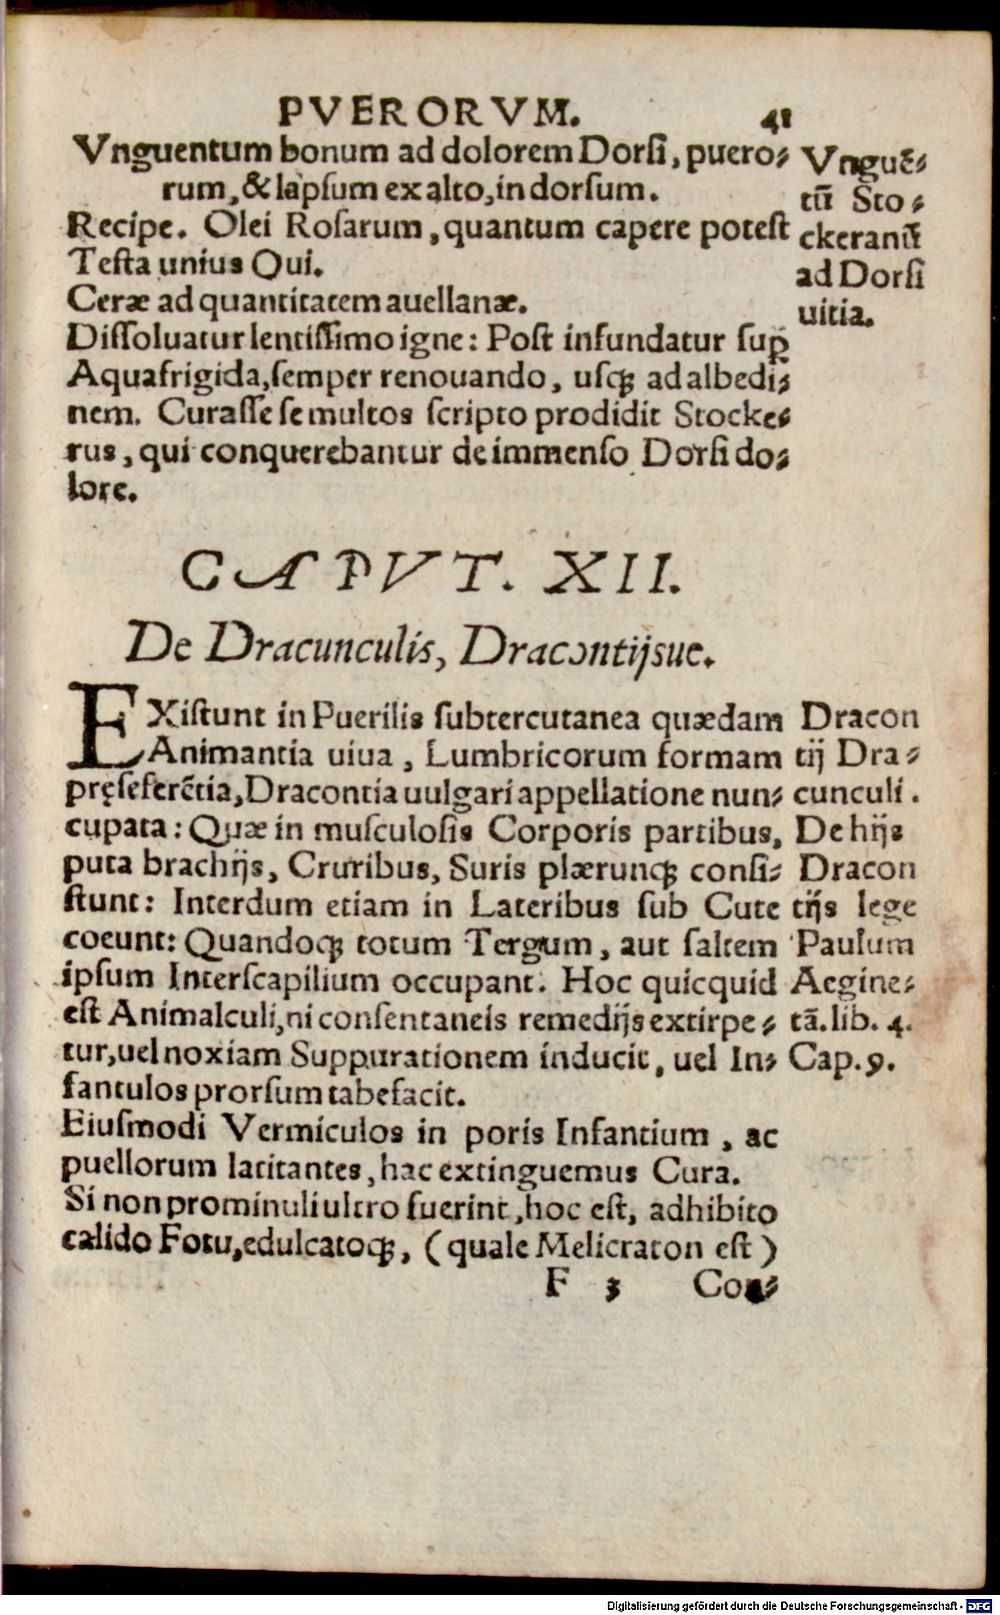 PVERORVM. 41
Vnguentum bonum ad dolorem Dorsi, puero⸗
rum, & lapsum ex alto, in dorsum.
Recipe. Olei Rosarum, quantum capere potest
Testa unius Oui.
Ceræ ad quantitatem auellanæ.
Dissoluatur lentissimo igne: Post infundatur sup̱
Aqua frigida, semper renouando, usq́ꝫ ad albedi⸗
nem. Curasse se multos scripto prodidit Stocke⸗
rus, qui conquerebantur de immenso Dorsi do⸗
lore.
Vnguẽ⸗
tũ Sto⸗
ckeranũ
ad Dorsi
uitia.
CAPVT. XII.
De Dracunculis, Dracontijsue.
EXistunt in Puerilis subtercutanea quædam
Animantia uiua, Lumbricorum formam
pręseferẽtia, Dracontia uulgari appellatione nun⸗
cupata: Quæ in musculosis Corporis partibus,
puta brachijs, Cruribus, Suris plærunqꝫ consi⸗
stunt: Interdum etiam in Lateribus sub Cute
coeunt: Quandoqꝫ totum Tergum, aut saltem
ipsum Interscapilium occupant. Hoc quicquid
est Animalculi, ni consentaneis remedijs extirpe⸗
tur, uel noxiam Suppurationem inducit, uel In⸗
fantulos prorsum tabefacit.
Eiusmodi Vermiculos in poris Infantium, ac
puellorum latitantes, hac extinguemus Cura.
Si non prominuli ultro fuerint, hoc est, adhibito
calido Fotu, edulcatoqꝫ, (quale Melicraton est)
Dracon
tij Dra⸗
cunculi.
De hijs
Dracon
tijs lege
Paulum
Aegine⸗
tã. lib. 4.
Cap. 9.
F 3 Con⸗
Digitalisierung gefördert durch die Deutsche Forschungsgemeinschaft - DFG